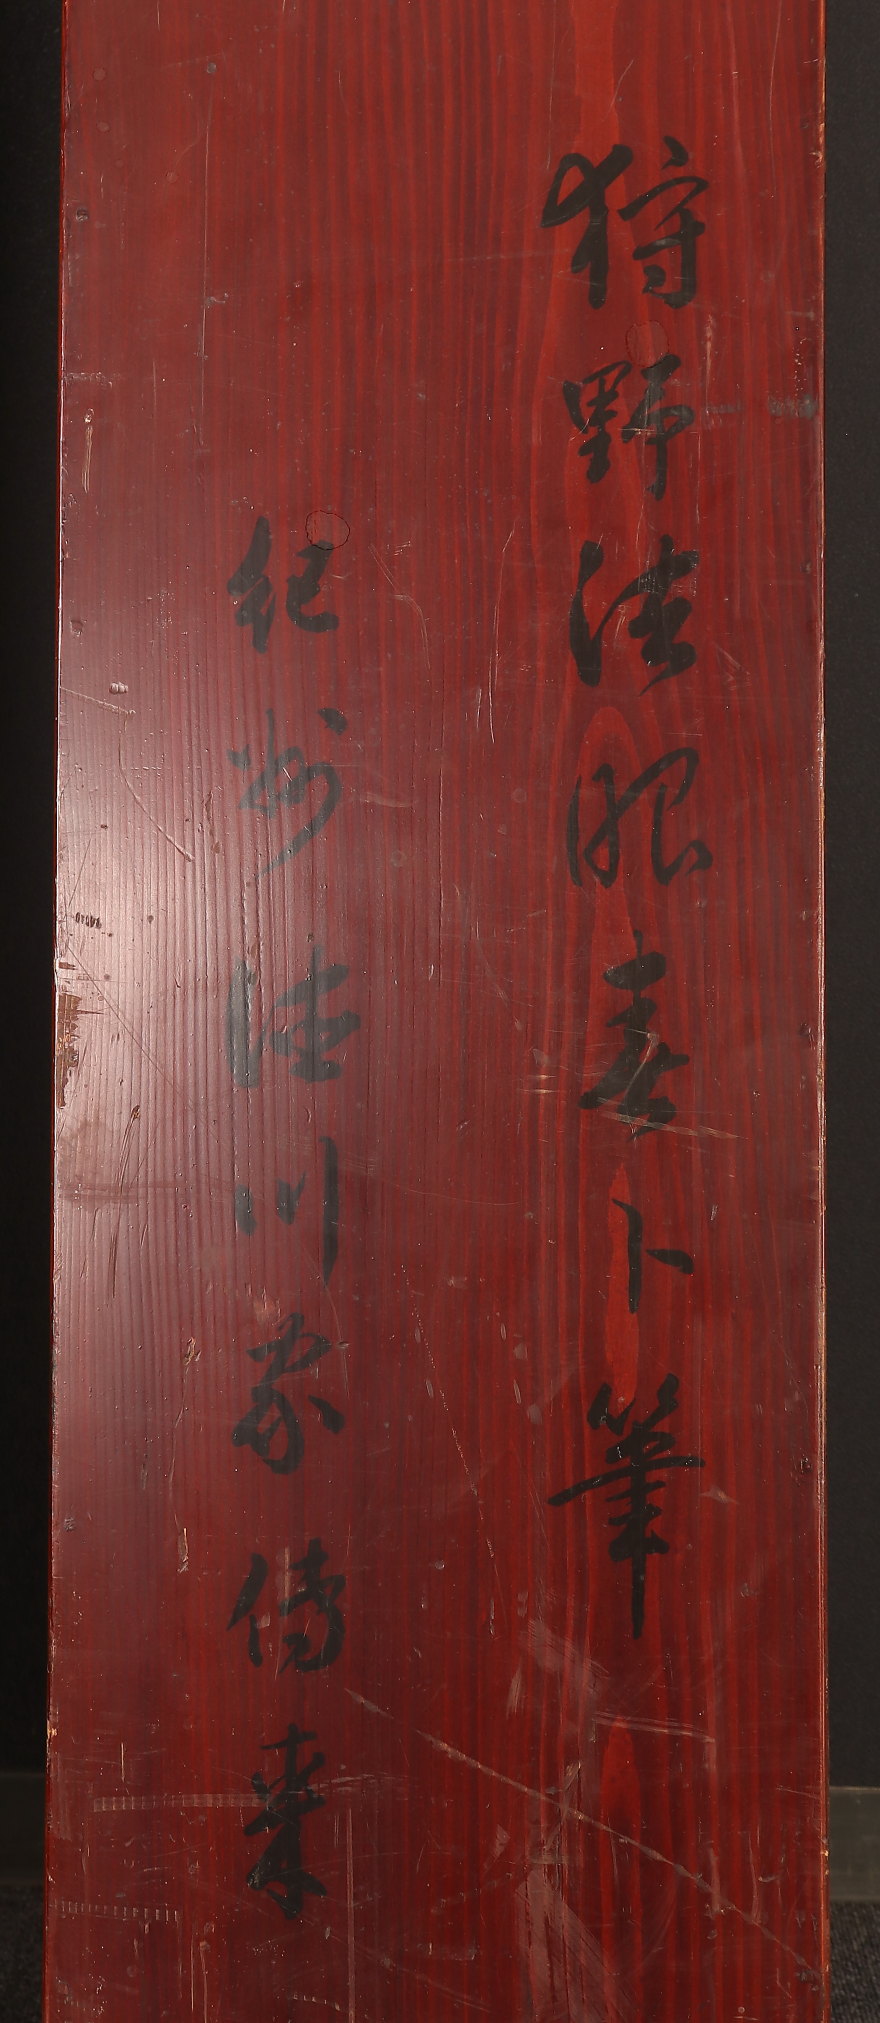 狩野法眼春卜筆
紀州徳川家傳来